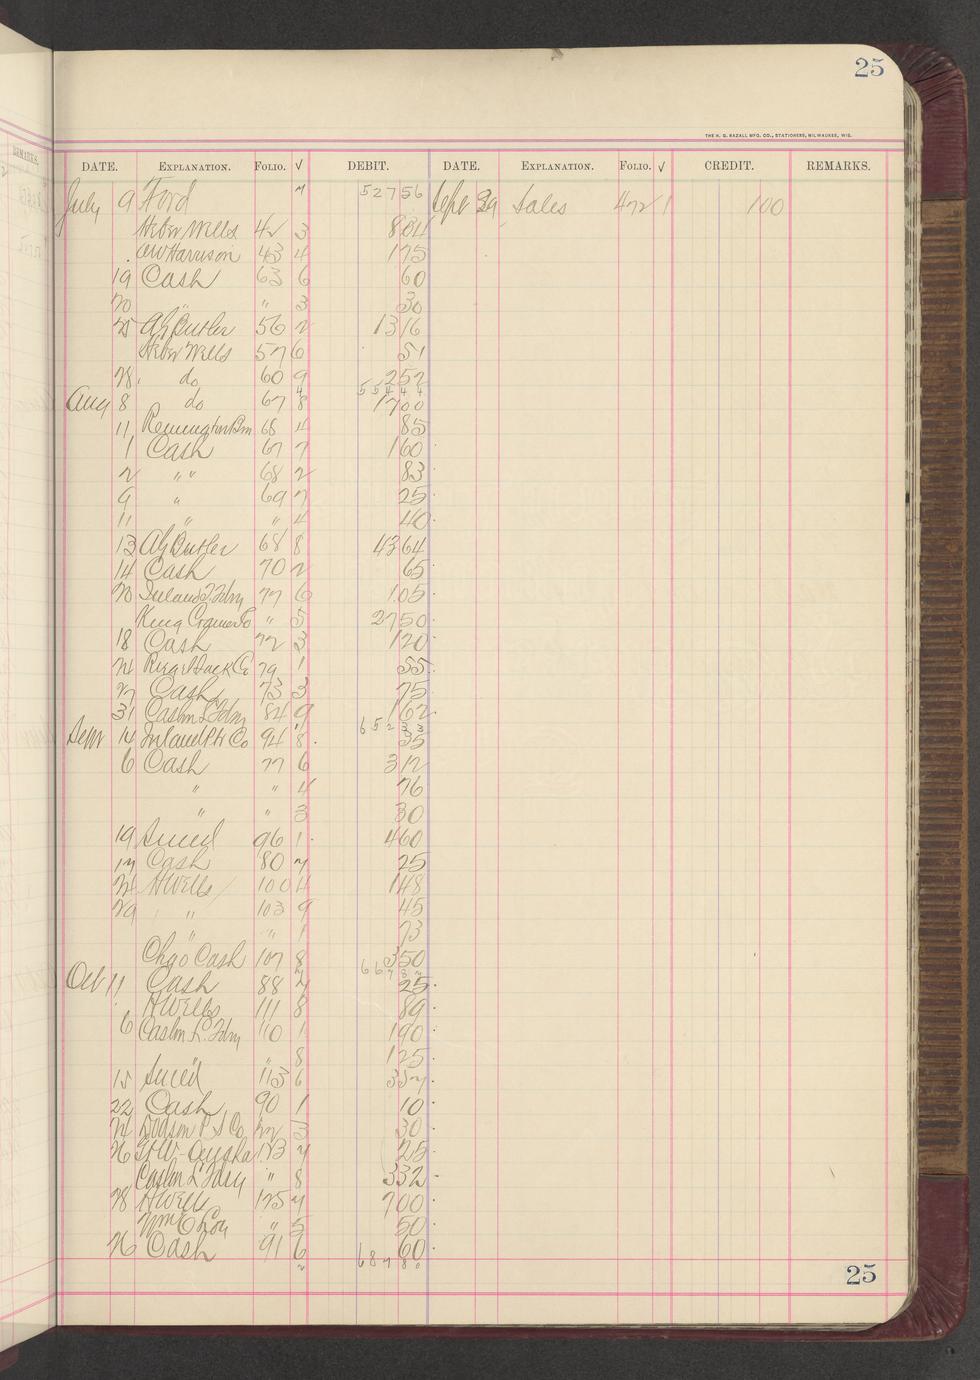 25
THE H. G. RAZALL MFG. CO., STATIONERS, MILWAUKEE, WIS.
REMARKS.
DATE. EXPLANATION. FOLIO. √ DEBIT. DATE. EXPLANATION. FOLIO. √ CREDIT. REMARKS.
July 9 Ford 7 527 56 Sept 29 Sales 472 1 1 00
Heber Wells 42 3 8 04
OW Harrison 43 4 1 75
19 Cash 63 6 60
20 " " 3 30
25 AG Butler 56 2 13 16
Heber Wells 57 6 51
28 do 60 9 2 52
554 44
Aug 8 do 67 8 17 00
11 Remington 68 4 85
1 Cash 67 7 1 60
2 " " 68 2 83
9 " 69 7 25
11 " " 4 40
13 AG Butler 68 8 43 64
14 Cash 70 2 65
20 Inland T. Fdry 77 6 1 05
King " 5 27 50
18 Cash 72 3 1 20
24 79 1 55
27 Cash 73 3 75
31 Caslon L Fdry 84 9 1 62
652 33
Sept 14 Inland Pt Co 94 8 35
6 Cash 77 6 3 12
" " 4 76
" " 3 30
19 Sneed 96 1 4 60
17 Cash 80 7 25
24 H Wells 100 4 1 48
29 " 103 9 45
" " 1 73
Chgo Cash 107 8 3 50
Oct 11 Cash 88 7 25
H Wells 111 8 89
6 Caslon L. Fdry 110 1 1 90
" " 8 1 25
15 Sneed 113 6 3 57
22 Cash 90 1 10
24 Dodson P S Co 122 3 30
26 123 7 25
Caslon L Fdry " 8 3 32
28 H Wells 125 7 7 00
Wm C " 5 50
26 Cash 91 6 60
687 80
25